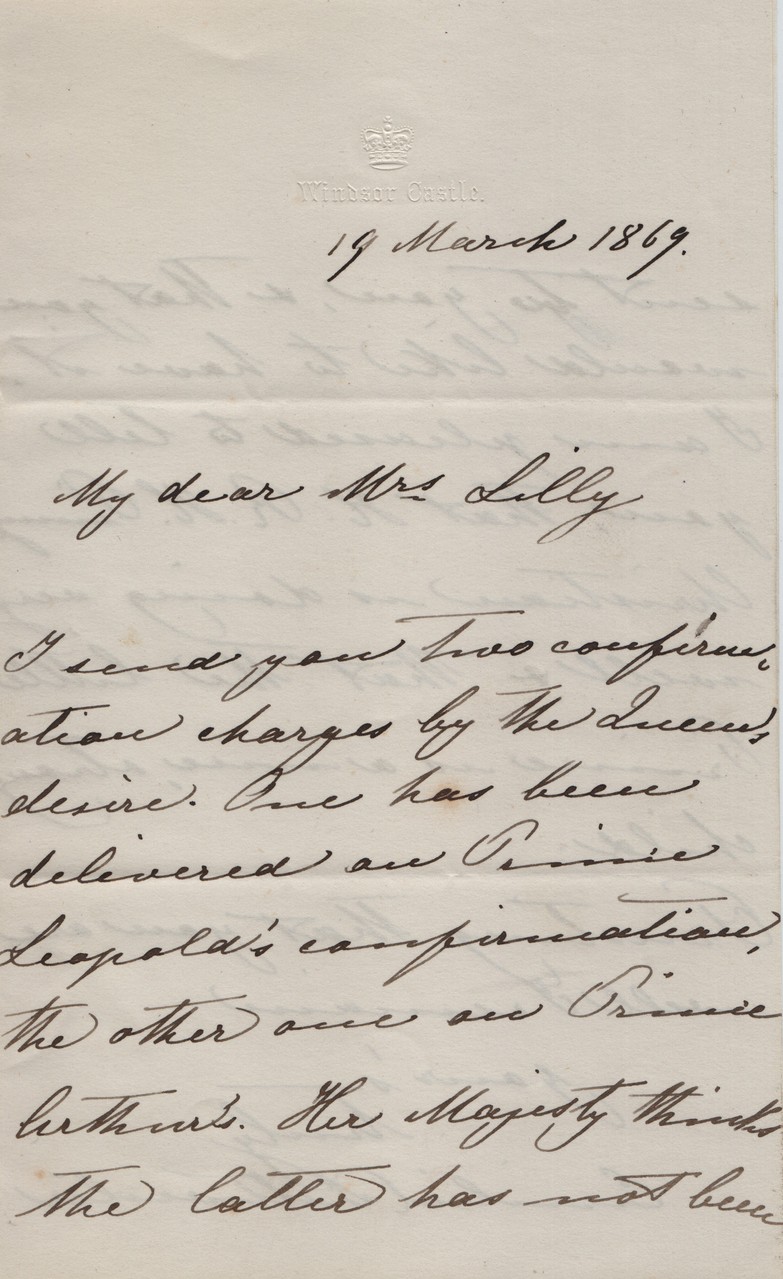 Windsor Castle.
19 March 1869.
My dear Mrs Lilly
I send you two confirm-
ation charges by the Queen's
desire. One has been
delivered on Prince
Leopold's confirmation,
the other one on Prince
Arthur's. Her Majesty thinks
the latter has not been